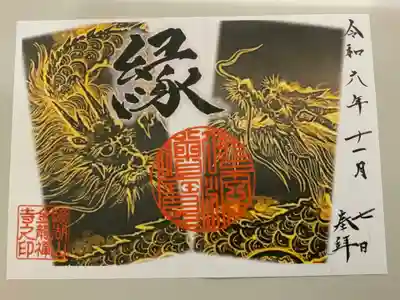 奉拝
令和六年十一月
七日
縁
金龍禅
寺之印